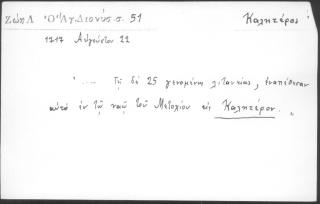 Ζώη Λ Ὁ Ἅγ. Διονύσ. σ. 51
Καλητέρος
1717 Αὐγούστου 22
"..... Τῇ δὲ 25 γενομένης λιτανείας, ἐναπέθεσαν
αὐτὸ ἐν τῷ ναῷ τοῦ Μετοχίου εἰς Καλητέρον. "